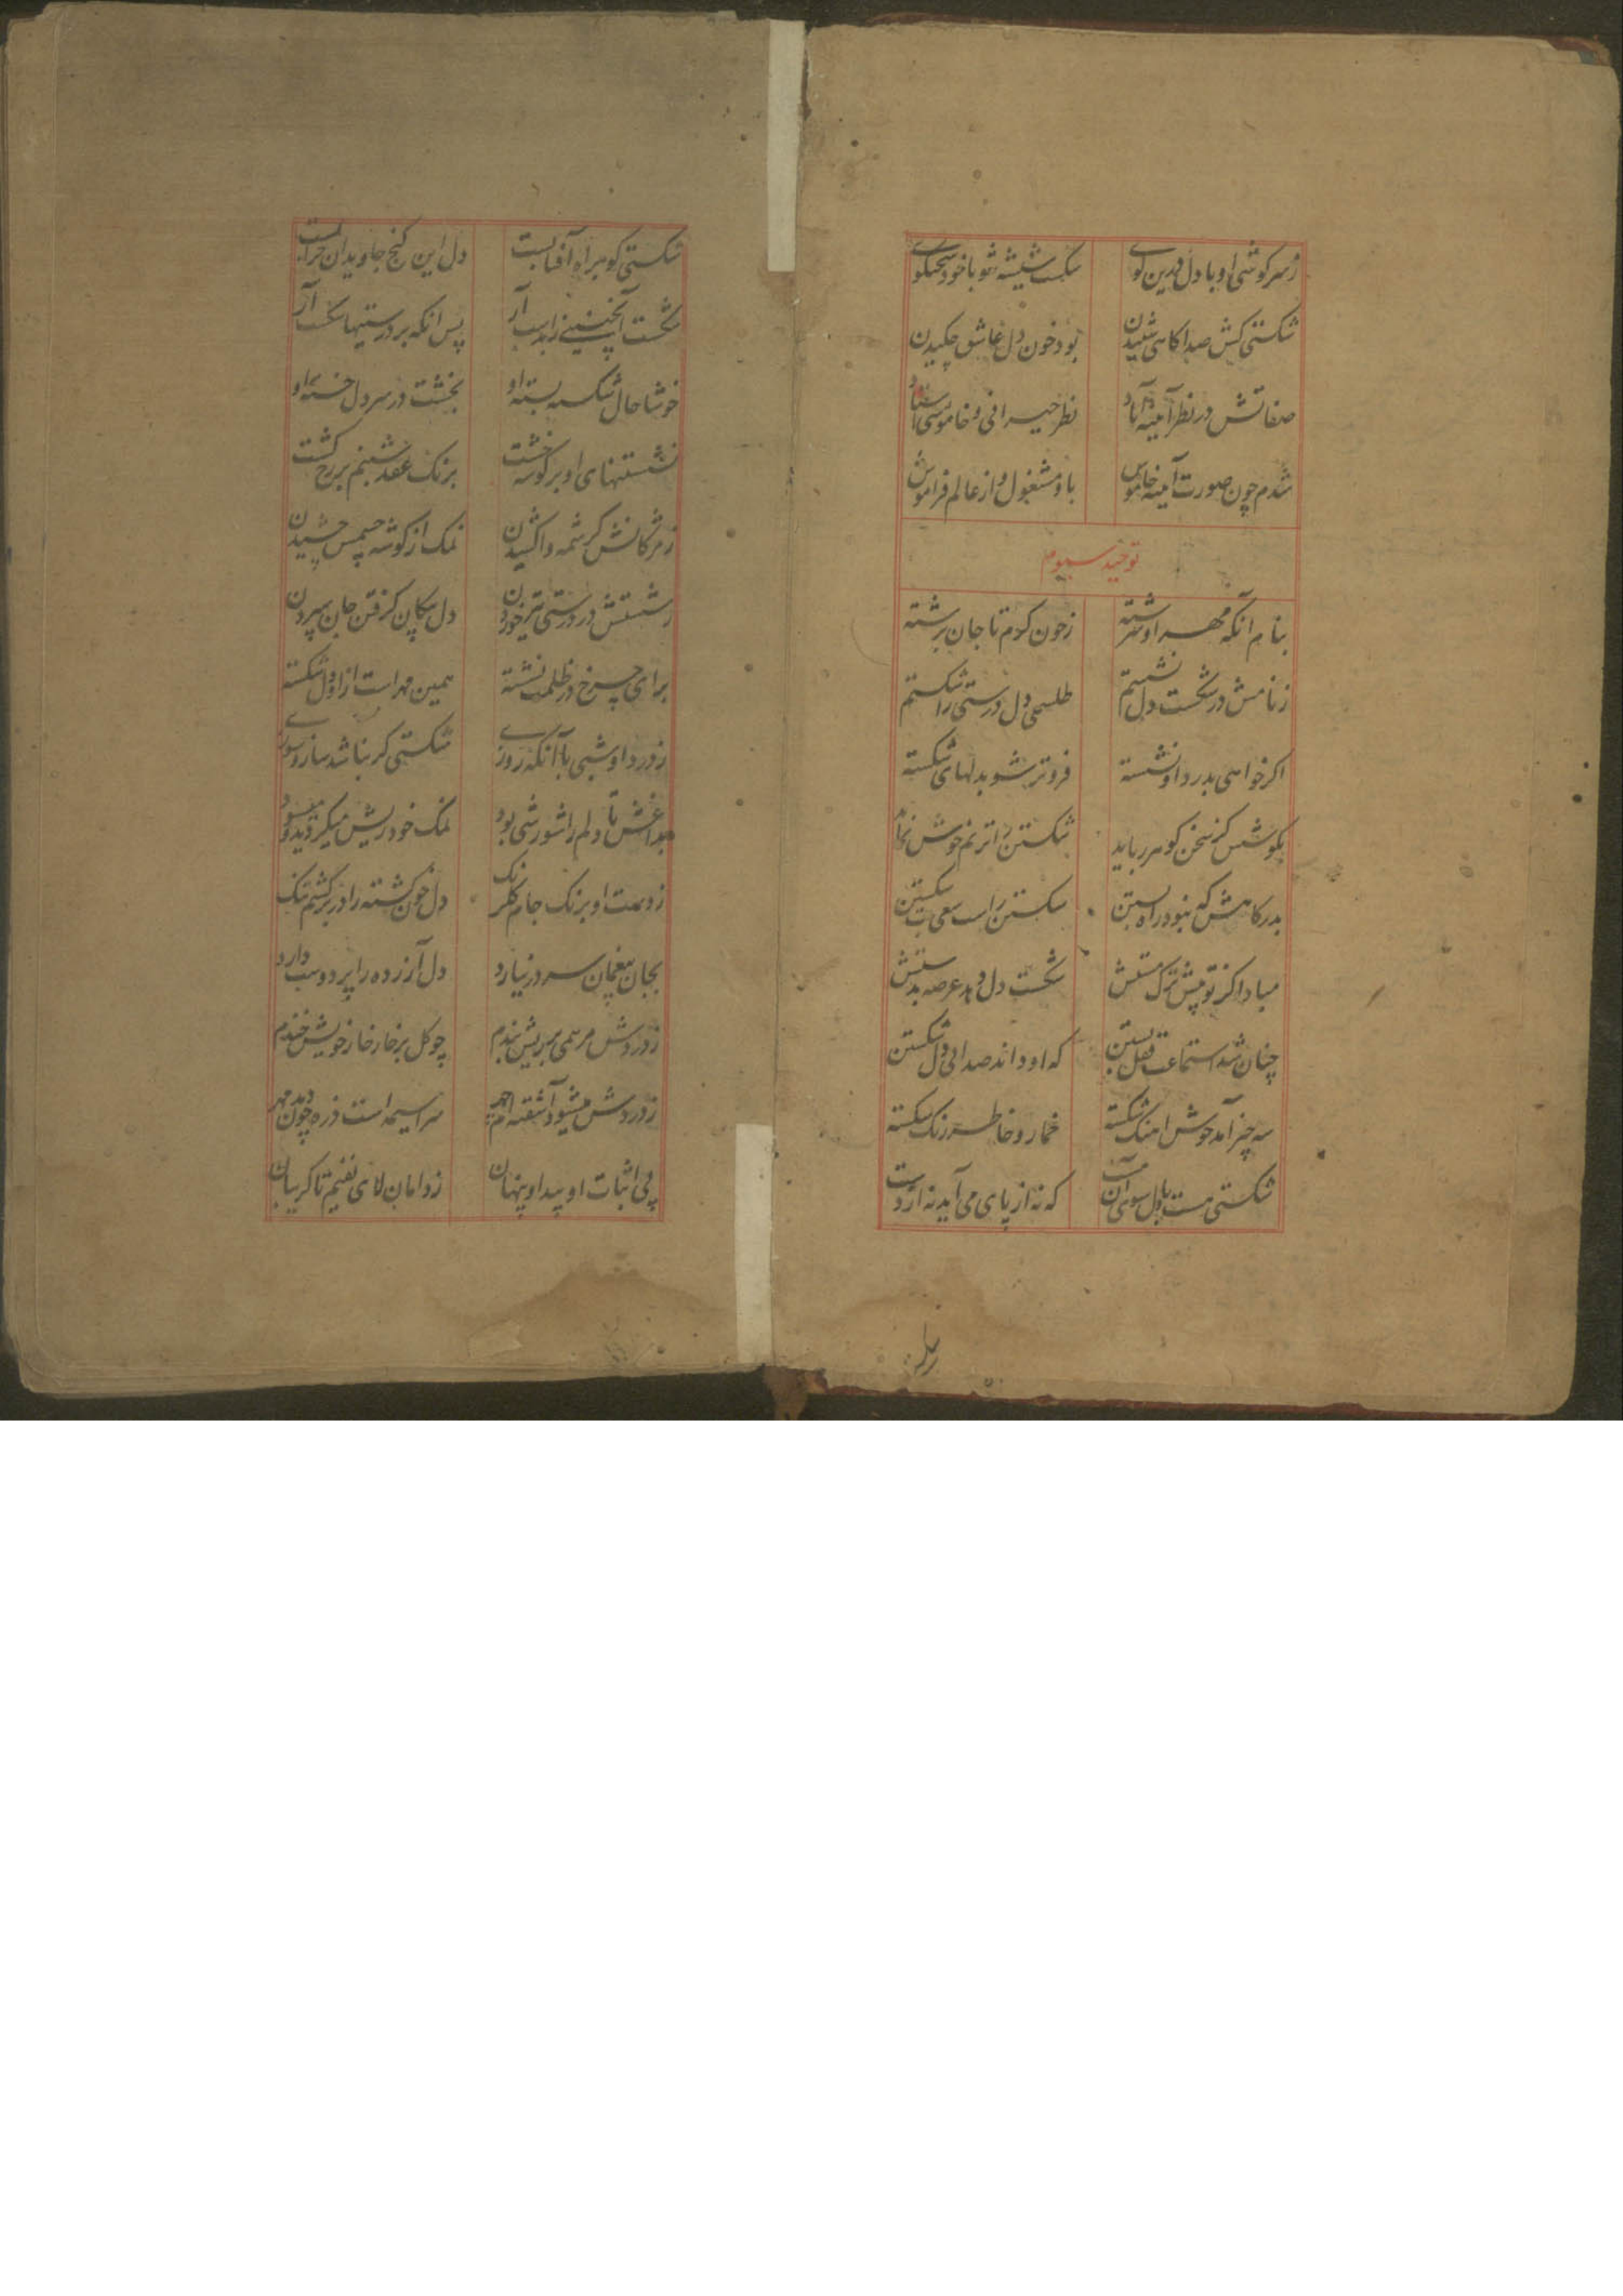 ز سرگوشی او با دل درین کوی شکست شیشه شو با خود سخنگوی
شکستی کش صدا گاهی شنیدن بود خون دل عاشق چکیدن
صفاتش در نظر آیینه آباد نظر حیرانی و خاموشی استاد
شدم چون صورت آیینه خاموش باو مشغول و از عالم فراموش
توحید سیوم
بنام آنکه مهر او سرشته ز خون گرم تا جان برشته
ز نامش در شکست دل نشستم طلسمی دل درستی را شکستم
اگر خواهی بدرد او نشسته فروتر شو بدلهای شکسته
بگوشش کز سخن گوهر رباید شکستن را ترنم خوش نماید
بدرگاهش که نبود راه بستن شکستن راست سعی شکستن
مبادا کز تو پیش ترک مستش شکست دل دهد عرصه بدستش
چنان شد استماعت قفل بستن که او داند صدای دل شکستن
سه چیز آمد خوش آهنگ شکسته خمار و خاطر و رنگ شکسته
شکستی هست با دل سوی آن مست که نه از پای می‌آید نه از دست
شکستی کو براه آفتابست دل این گنج جاویدان خرابست
شکست آبگینه زاید آر پس آنکه بر درستیها شکست آر
خوشا حال شکسته بسته او بخشت در سر دل خسته او
نشستنهای او بر گوشه خشت برنگ عقد شبنم بر رخ کشت
ز مژگانش کرشمه واکشیدن نمک از گوشه چشمش چشیدن
ز شستش در درستی تیر خوردن دل پیکان گرفتن جان سپردن
برای چرخ در ظلمت نشسته همین مهر است از او دل شکسته
ز درد او شبی با آنکه روزی شکستی گر بناشد ساز و سوزی
بداغش تا دلم را شورشی بود نمک خود ریش میکردید و میسود
ز دست او برنگ جام گلرنگ دل خون گشته را در بر کشم تنگ
بجان بیغمان سر در نیارد دل آزرده را پر دوست دارد
ز دردش مرهمی بر ریش بندم چو گل بر خار خار خویش خندم
ز دردش میشود آشفته ام سراسیمه است ذره چون دمد مهر
پی اثبات او پیدا و پنهان ز دامان لای نفیم تا گریبان